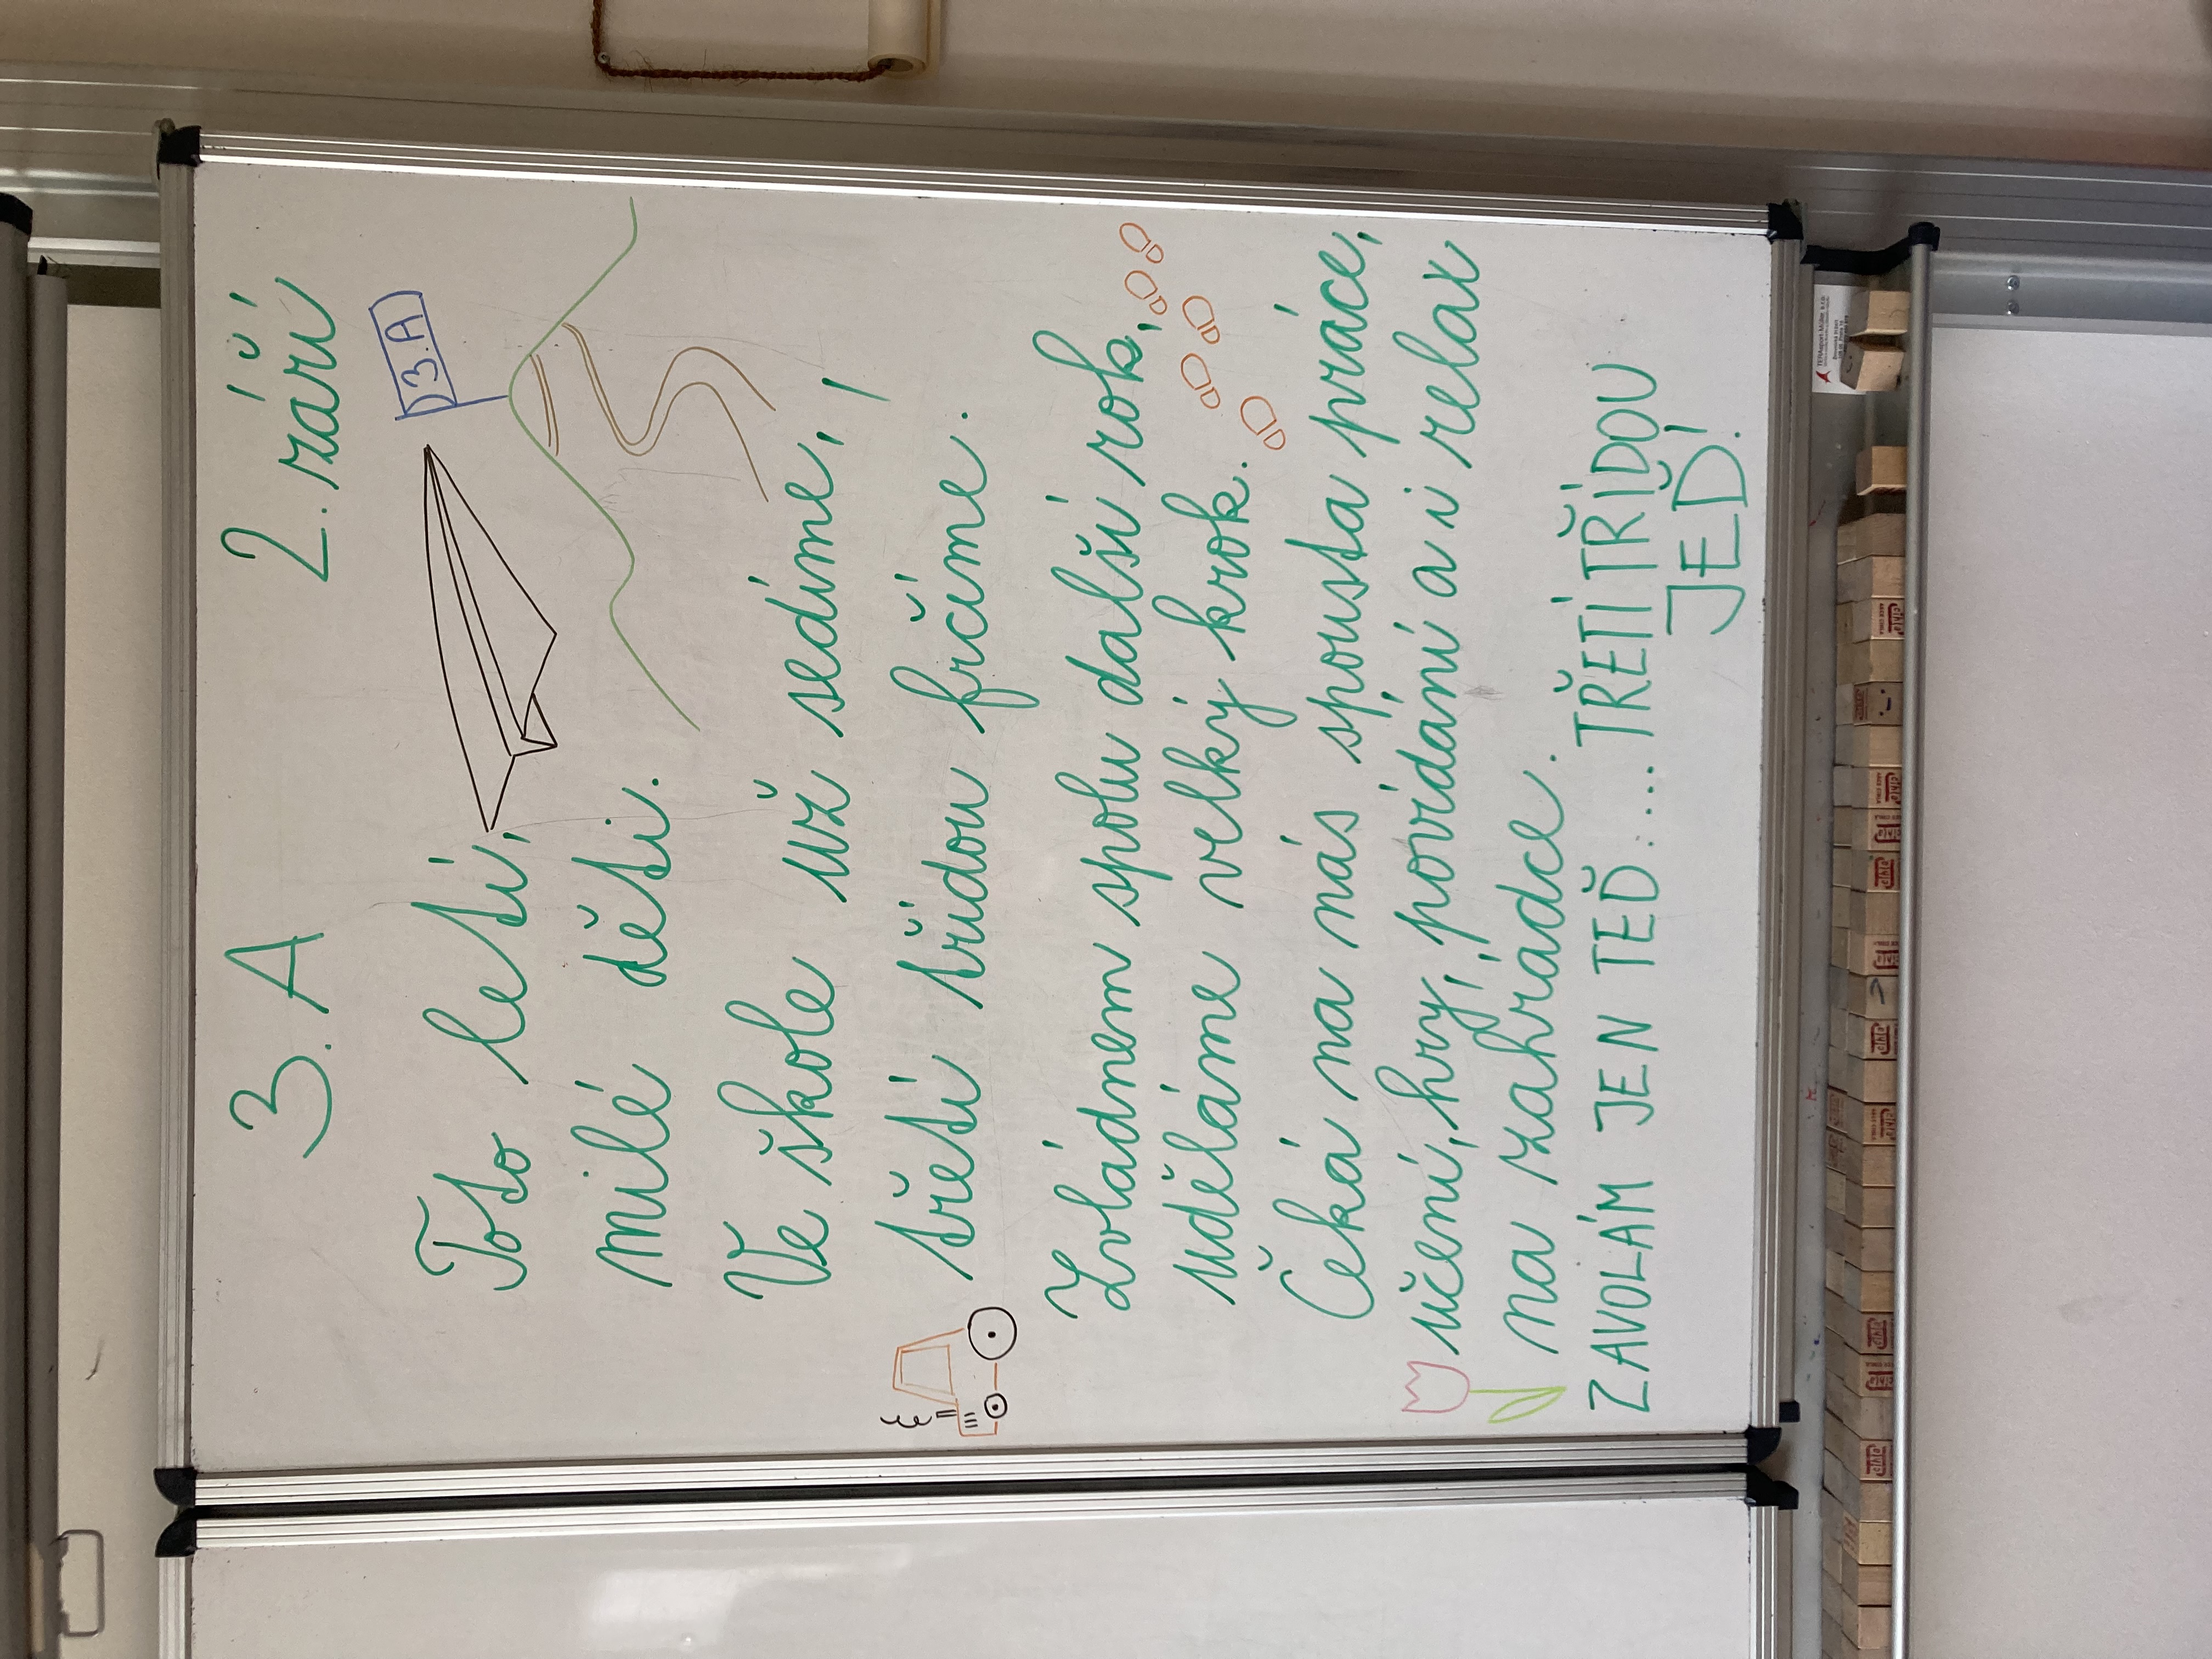 3. A 2. září
3.A
Toto letí,
milé děti.
Ve škole už sedíme,
třetí třídou frčíme.
Zvládnem spolu další rok,
uděláme velký krok.
Čeká na nás spousta práce,
učení, hry, povídání a i relax
na zahrádce.
ZAVOLÁM JEN TEĎ.... TŘETÍ TŘÍDOU
JEĎ!